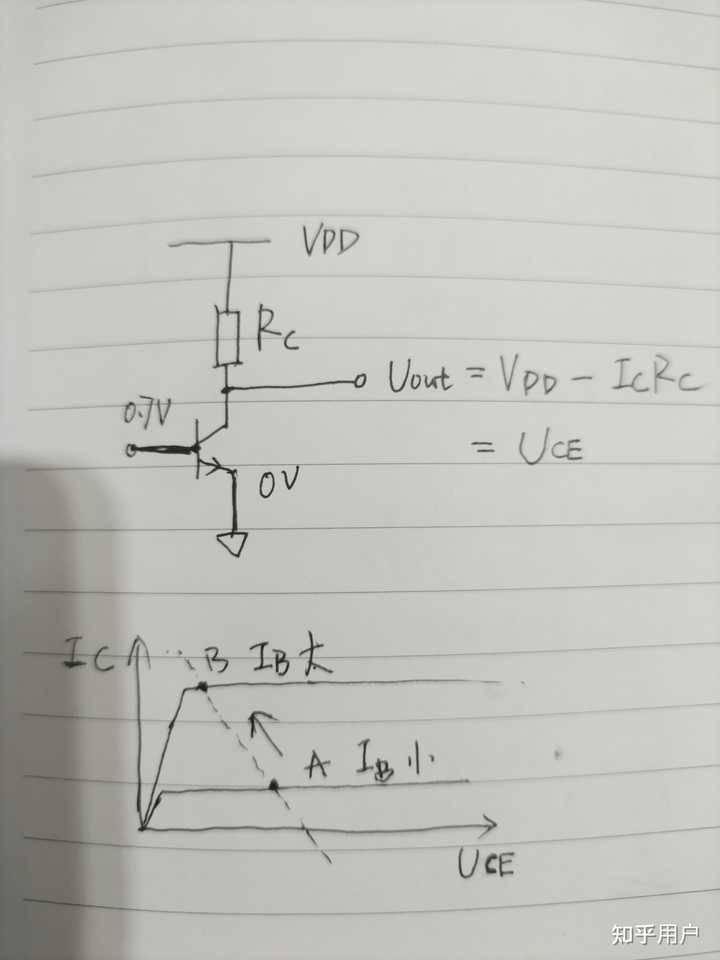 VDD
RC
Uout = VDD - ICRC
0.7V
= UCE
0V
IC
B IB大
A IB小
UCE
知乎用户